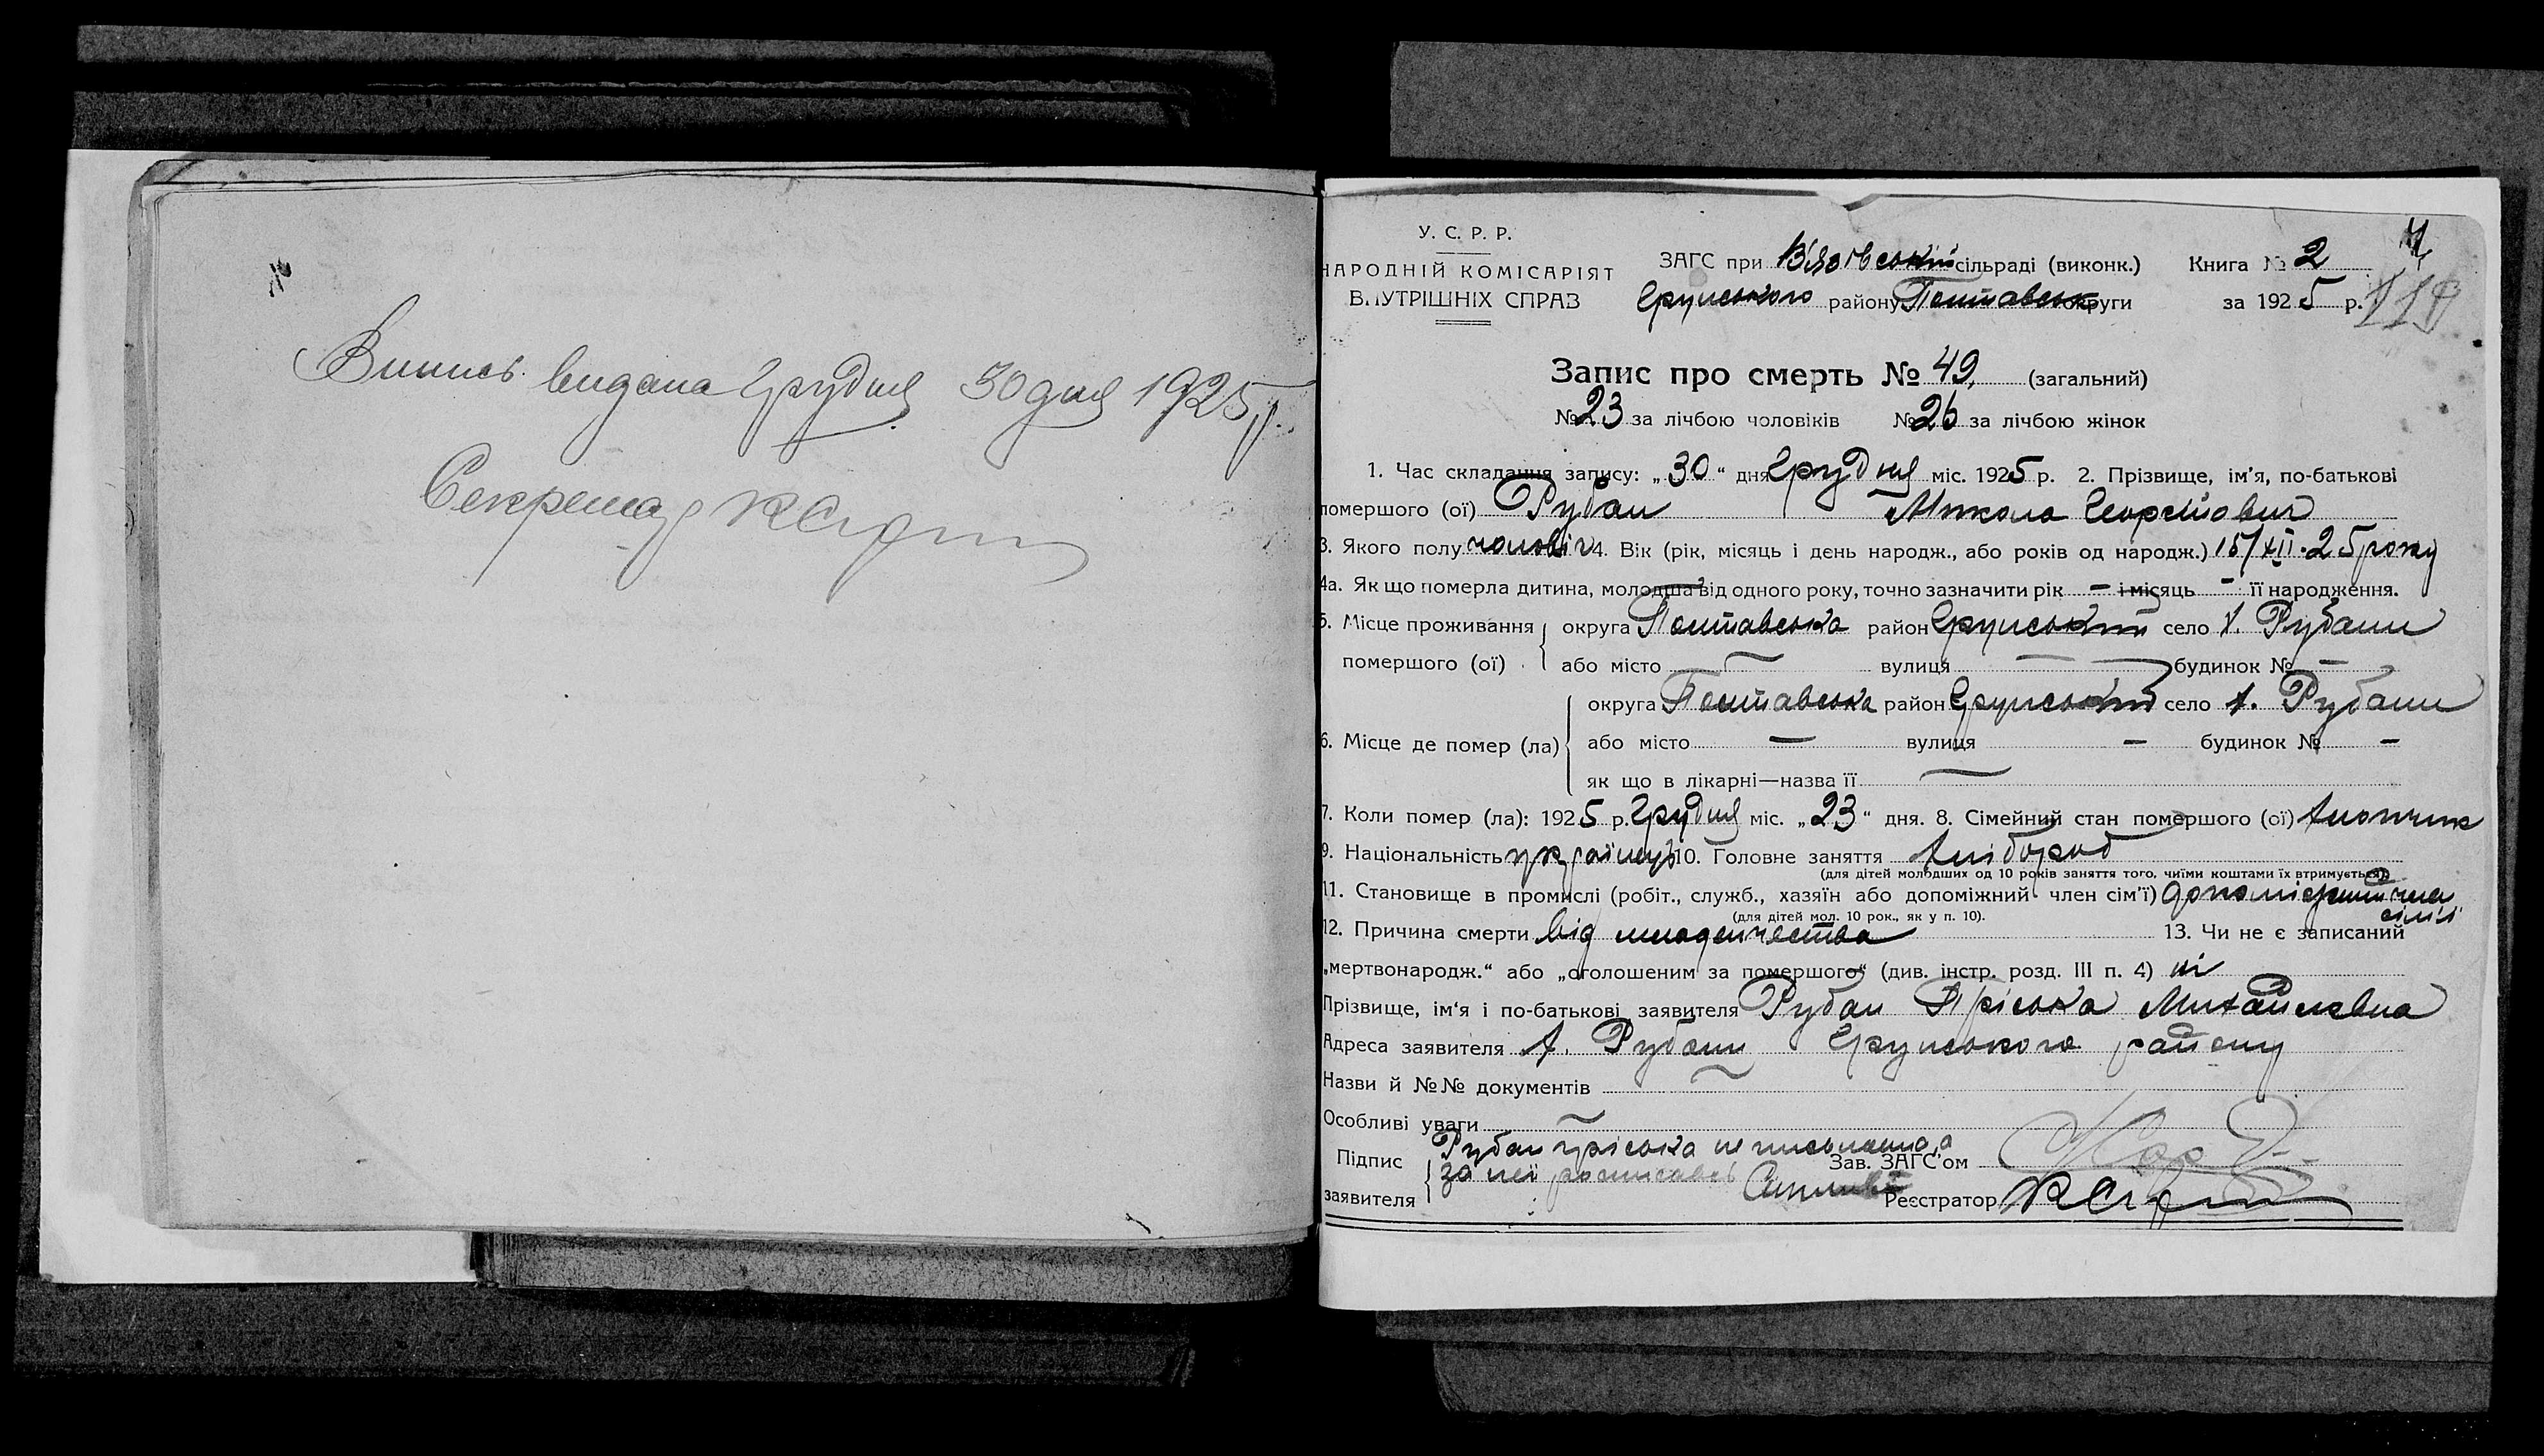 Випись видана Грудня 30 дня 1925 р.
Секретар
У. С. Р. Р.
НАРОДНІЙ КОМІСАРІЯТ
ВНУТРІШНІХ СПРАВ
ЗАГС при сільраді (виконк.) Книга № 2
Грунського району Полтавськ округи за 1925 р. 119
Запис про смерть № 49 (загальний)
№ 23 за лічбою чоловіків № 26 за лічбою жінок
1. Час складання запису: „30“ дня Грудня міс. 1925 р. 2. Прізвище, ім’я, по-батькові
помершого (ої) Рубан Микола Георгійович
3. Якого полу чоловіч 4. Вік (рік, місяць і день народж., або років од народж.) 15/XII-25 року
4а. Як що померла дитина, молодша від одного року, точно зазначити рік — і місяць — її народження.
5. Місце проживання округа Полтавська район Грунський село х. Рубани
помершого (ої) або місто — вулиця — будинок № —
округа Полтавська район Грунський село х. Рубани
6. Місце де помер (ла) або місто — вулиця — будинок № —
як що в лікарні—назва її —
7. Коли помер (ла): 1925 р. Грудня міс. „23“ дня. 8. Сімейний стан помершого (ої) хлопчик
9. Національність українець 10. Головне заняття хлібороб
(для дітей молодших од 10 років заняття того, чиїми коштами їх втримується)
11. Становище в промислі (робіт., служб., хазяїн або допоміжний член сім’ї) допоміжний член сім'ї
(для дітей мол. 10 рок., як у п. 10).
12. Причина смерти від младенчества 13. Чи не є записаний
„мертвонародж.“ або „оголошеним за помершого“ (див. інстр. розд. III п. 4) ні
Прізвище, ім‘я і по-батькові заявителя Рубан Пріська Михайлівна
Адреса заявителя х. Рубани Грунського району
Назви й №№ документів —
Особливі уваги —
Рубан Пріська не письменна, а
Підпис за неї росписавсь Зав. ЗАГС’ом
заявителя Реєстратор